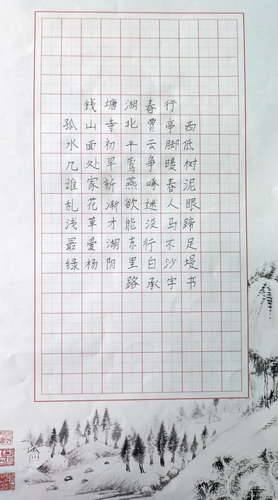 钱塘湖春行
孤山寺北贾亭西
水面初平云脚低
几处早莺争暖树
谁家新燕啄春泥
乱花渐欲迷人眼
浅草才能没马蹄
最爱湖东行不足
绿杨阴里白沙堤
路承字书